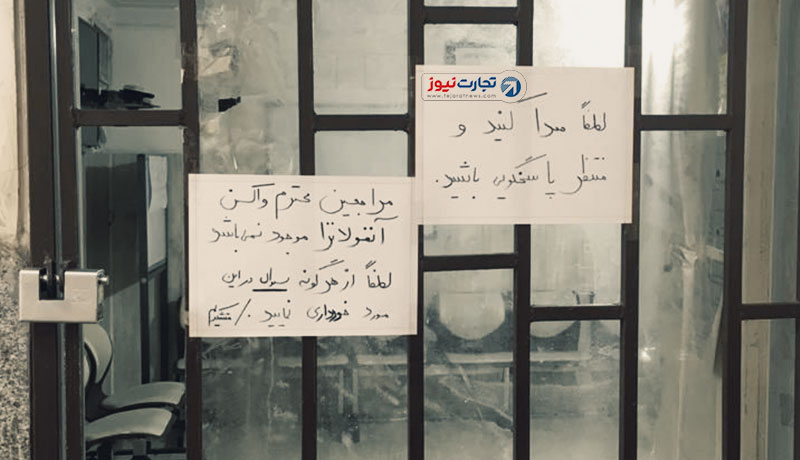 تجارت نیوز
www.tejaratnews.com
لطفاً صدا کنید و
منتظر پاسگخویی باشید.
مراجعین محترم واکسن
آنفولانزا موجود نمی باشد
لطفاً از هر گونه سوال در این
مورد خودداری نمایید ./ متشکریم